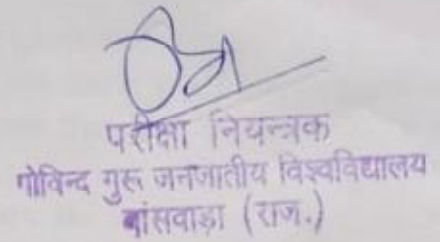 परीक्षा नियन्त्रक
गोविन्द गुरू जनजातीय विश्वविद्यालय
बांसवाड़ा (राज.)